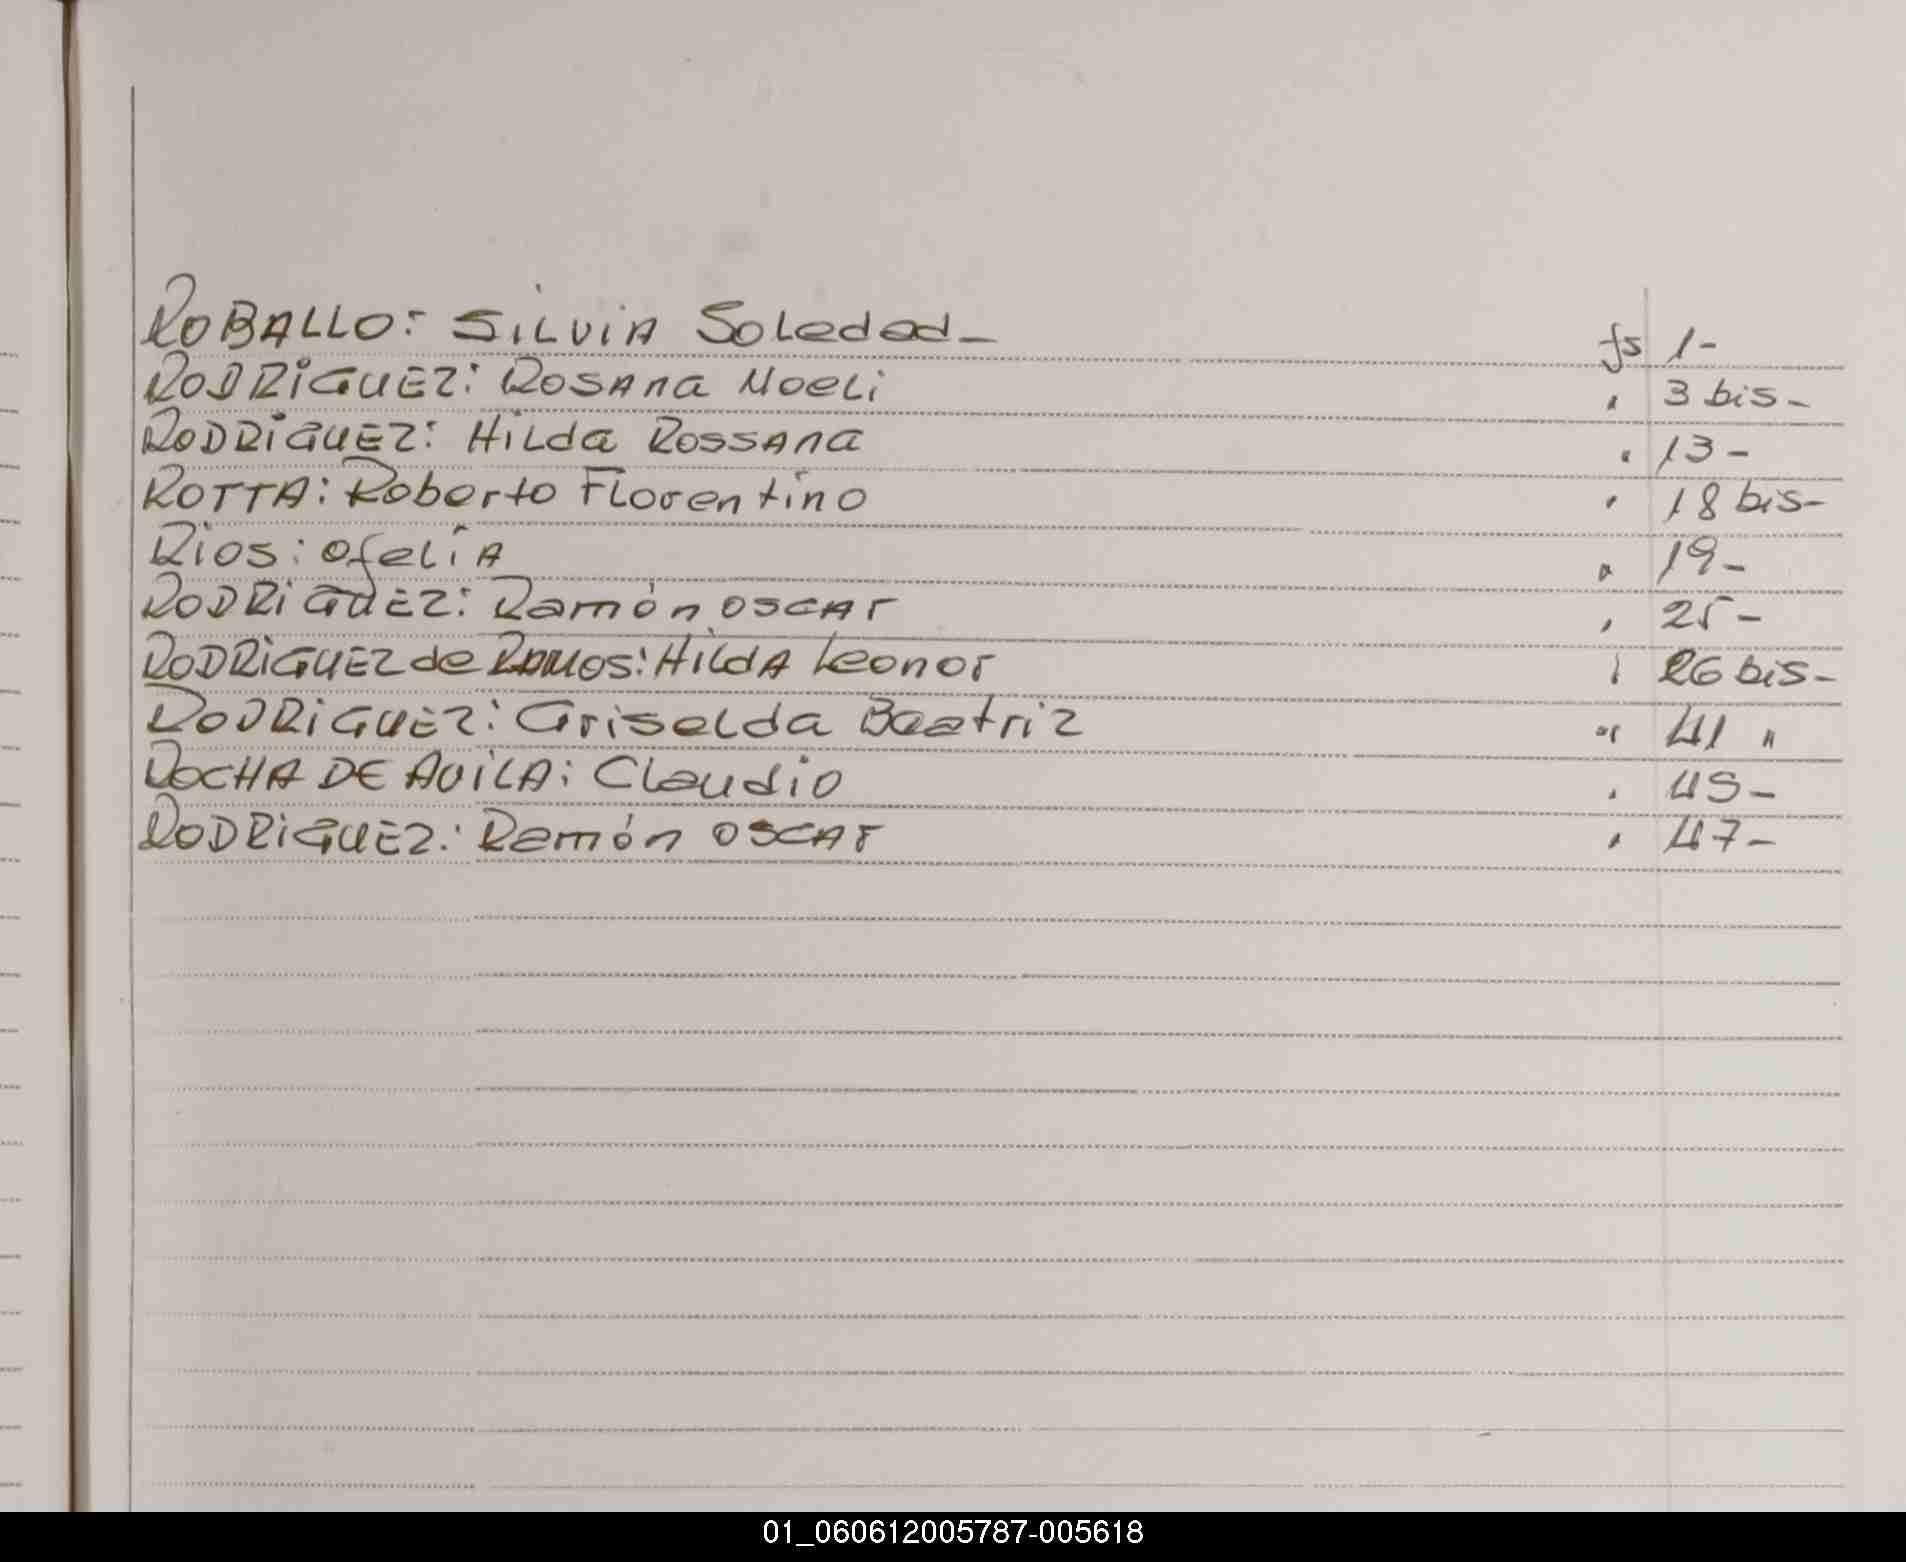 ROBALLO: SILVIA Soledad- fs 1-
RODRIGUEZ: ROSANA Noeli " 3 bis-
RODRIGUEZ: HILda ROSSANA " 13-
ROTTA: Roberto Florentino " 18 bis-
Rios: Ofelia " 19-
RODRIGUEZ: Ramón OSCAR " 25-
RODRIGUEZ de RAMOS: HILDA Leonor " 26 bis-
RODRIGUEZ: Griselda Beatriz " 41 "
ROCHA DE AVILA: Claudio " 45-
RODRIGUEZ: Ramón OSCAR " 47-
01_060612005787-005618